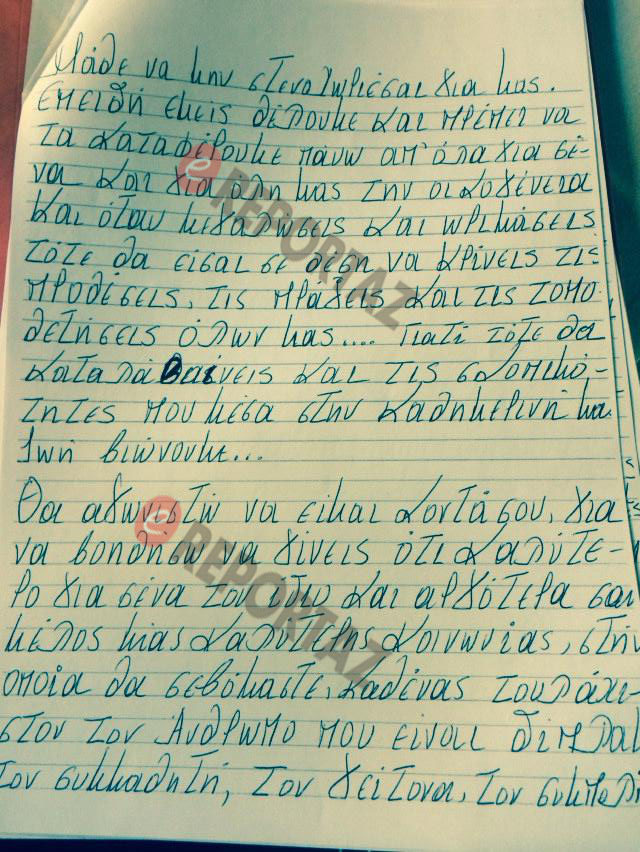 Μάθε να μην στεναχωριέσαι για μας.
Επειδή εμείς θέλουμε και πρέπει να
τα καταφέρουμε πάνω απ' όλα για σέ-
να και για όλη μας την οικογένεια
και όταν μεγαλώσεις και ωριμάσεις
τότε θα είσαι σε θέση να κρίνεις τις
προθέσεις, τις πράξεις και τις τοπο-
θετήσεις όλων μας.... Γιατί τότε θα
καταλαβαίνεις και τις σκοπιμό-
τητες που μέσα στην καθημερινή μα
ζωή βιώνουμε...
Θα αγωνιστώ να είμαι κοντά σου, για
να βοηθήσω να γίνεις ότι καλύτε-
ρο για σένα τον ίδιο και αργότερα σαν
μέλος μιας καλύτερης κοινωνίας, στην
οποία θα σεβόμαστε, καθένας τουλάχι-
στον τον Άνθρωπο που είναι δίπλα
τον συμμαθητή, τον γείτονα, τον συμπολί
e REPORTAZ
e REPORTAZ